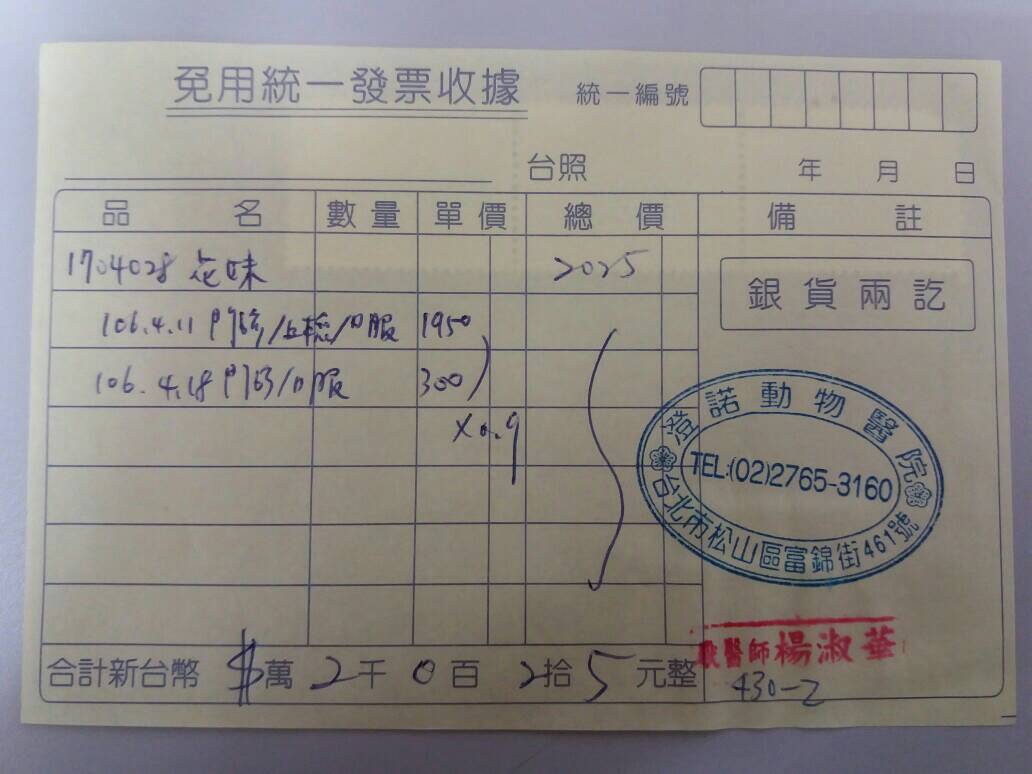 免用統一發票收據
統一編號
台照 年 月 日
品名 數量 單價 總價 備註
1704028 花味 2025
銀貨兩訖
106.4.11 門診/血檢/口服 1950
106.4.18 門診/口服 300
x0.9
澄諾動物醫院
TEL:(02)2765-3160
台北市松山區富錦街461號
合計新台幣 $萬2千0百2拾5元整
獸醫師楊淑華
430-2